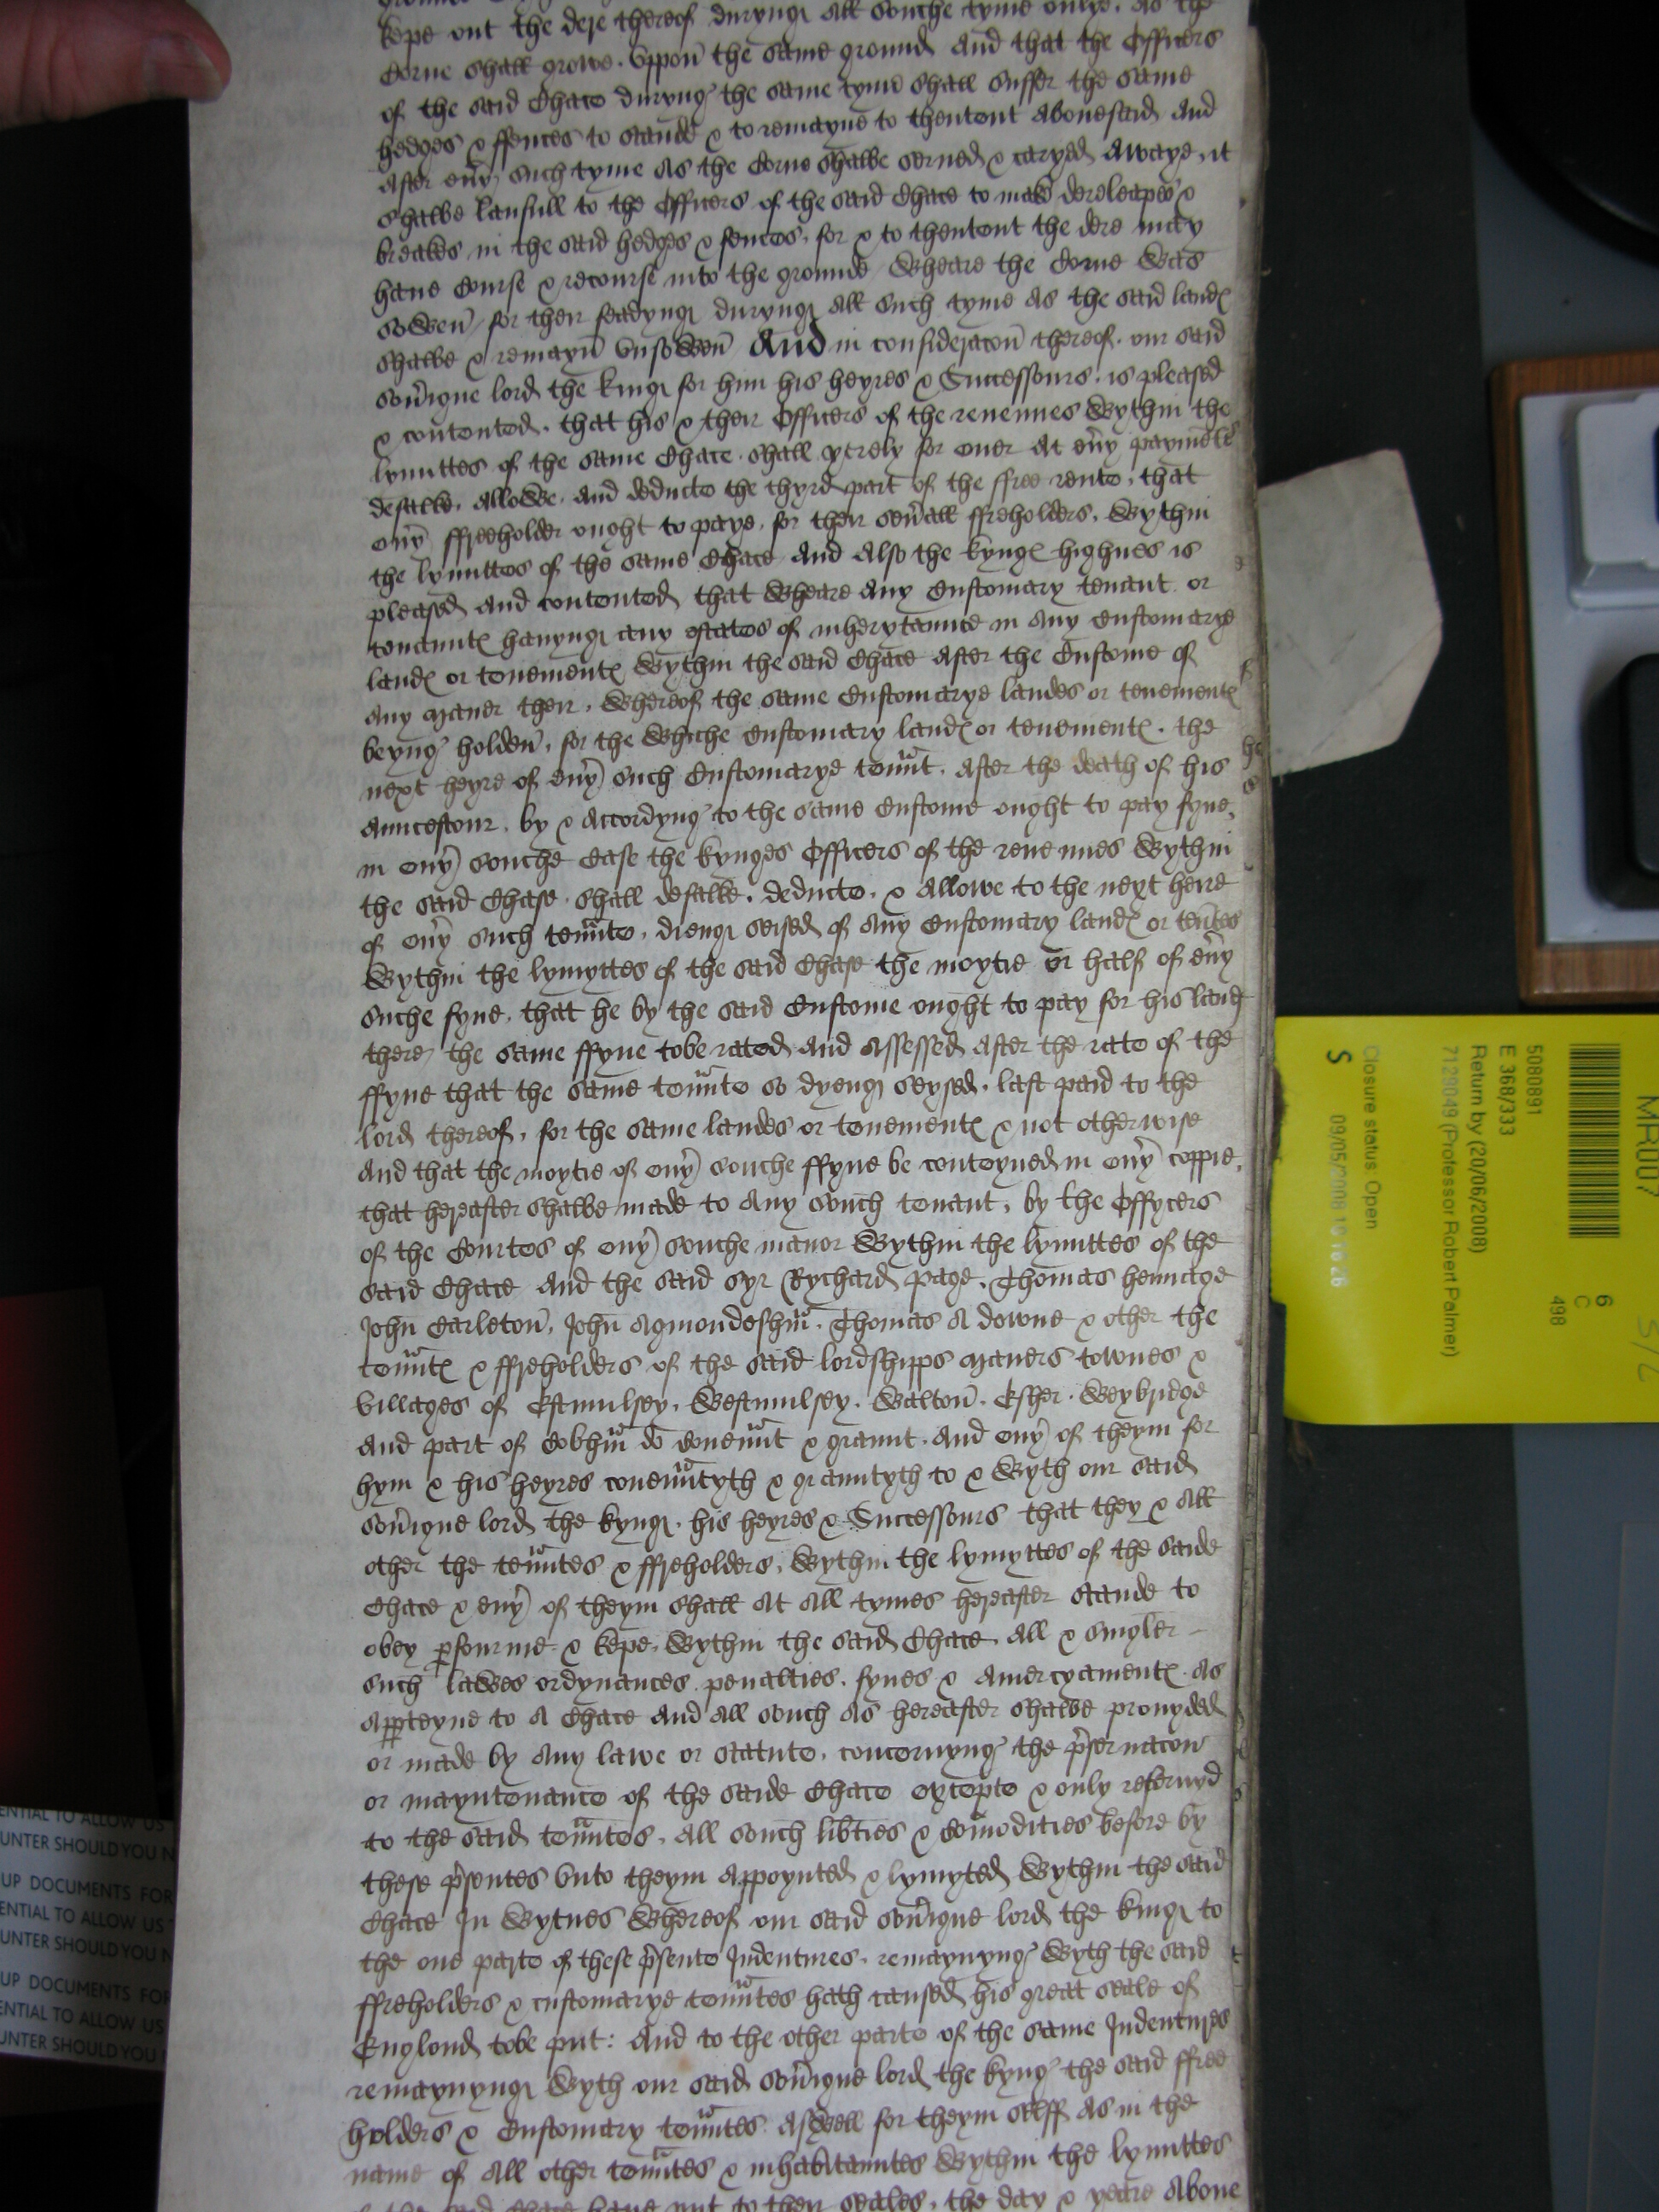 kepe out the dere therof duryng all souche tyme onlye, as the
Corne shall growe uppon the same ground And that the Officers
of the said Chace duryng the same tyme shall suffer the same
hedges & ffences to stande & to remayne to thentent abovesaid And
after eny such tyme as the Corne shalbe serned & caryed Awaye, it
shalbe laufull to the Officers of the said Chace to make dereleapes &
breakes in the said hedges & fences, for & to thentent the dere may
have Course & recourse into the grounde Wheare the Corne was
sowen for their feadyng duryng all such tyme as the said landes
shalbe & remayn unsowen And in consideracon therof, our said
sovrigne lord the king for him his heyres & Successours, is pleased
& contented, that his & their Officers of the revenues Wythin the
lymittes of the same Chace shall yerely for ever At evry paymente
defalke, allowe, and deducte the thyrd part of the ffree rente, that
evry ffreeholder ought to paye, for their sevrall ffreholders, Wythin
the lymittes of the same Chace And Also the kynges highnes is
pleased and contented that Wheare any Customary tenant or
tenauntes havyng any estates of inherytaunce in any Customarye
landes or tenementes Wythin the said Chace After the Custome of
any maner their, Whereof the same Customarye landes or tenementes
beyng holden, for the Whiche Customary landes or tenementes, the
next heyre of evry such Customarye tennt, after the death of his
Auncestour, by & Accordyng to the same Custome ought to pay fyne,
in evry souche Case the kynges Officers of the revenues Wythin
the said Chase shall defalke, deducte, & Allowe to the next heire
of evry such tennte, dieng seised of any Customary landes or tentes
Wythin the lymyttes of the said Chase the moytie or half of evry
suche fyne, that he by the said Custome ought to pay for his land
there, the same ffyne tobe rated And Assessed After the rate of the
ffyne that the same tennte so dyeng seysed, last paid to the
lord therof, for the same landes or tenementes & not otherwise
And that the moytie of evry souche ffyne be conteyned in evry coppie,
that hereafter shalbe made to Any souch tenant, by the Offycers
of the Courtes of evry souche manor Wythin the lymittes of the
said Chace And the said syr Rychard page, Thomas hennage
John Carleton, John Agmondeshm, Thomas A downe & other the
tenntes & ffreholders of the said lordshipps maners townes &
Villages of Estmulsey, Westmulsey, Walton, Esher, Weybridge
And part of Cobhm do Covennt & graunt, And evry of theym for
hym & his heyres coventyth & grauntyth to & Wyth our said
sovrigne lord the kyng, his heyres & Successours that they & All
other the tenntes & ffreholders, Wythin the lymyttes of the saide
Chace & evry of theym shall At All tymes hereafter stande to
obey pfourme & kepe, Wythin the said Chace, All & singler
such lawes ordynances penalties, fynes & Amercyamentes As
Appteyne to A Chace And all souch as hereafter shalbe provyded
or made by Any lawe or statute, concernyng the pservacon
or mayntenance of the saide Chace excepte & only reservyd
to the said tenntes, all souch libties & comodities before by
these psentes unto theym Appoynted & lymyted Wythin the said
Chace In Wytnes Whereof our said sovrigne lord the king to
the one parte of these psente Indentures, remaynyng Wyth the said
ffreholders & customarye tenntes hath caused his great seale of
Englond tobe put: And to the other parte of the same Indentures
remaynyng Wyth our said sovrigne lord the kyng the said ffree
holders & Customary tenntes Aswell for theym selff As in the
name of All other tenntes & inhabitanntes Wythin the lymittes
of the said Chace have put to their seales, the day & yeare Above
MR007
5080891
E 368/333
Return by (20/06/2008)
7129049 (Professor Robert Palmer)
Closure status: Open
S 09/05/2008
6
C
498
ENTIAL TO ALLOW US
UNTER SHOULD YOU N
UP DOCUMENTS FOR
ENTIAL TO ALLOW US
UNTER SHOULD YOU N
UP DOCUMENTS FOR
ENTIAL TO ALLOW US
UNTER SHOULD YOU